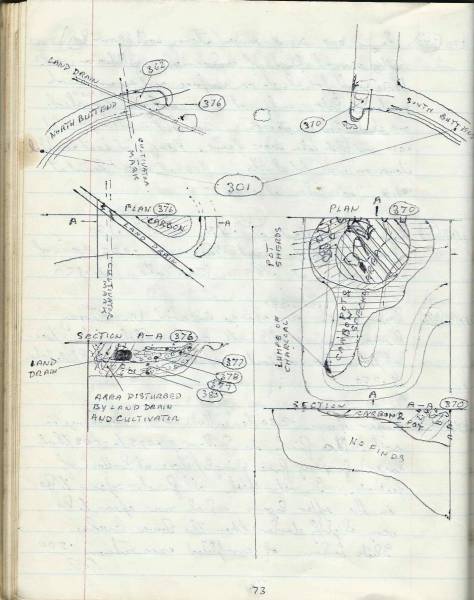 LAND DRAIN
362
376
NORTH BUTT END
CULTIVATOR
MARK
370
SOUTH BUTT EN
301
PLAN 376
CARBON
A
A
LAND DRAIN
CULTIVATOR
MARK
PLAN
A
370
POT
SHERDS
LUMPS OF
CHARCOAL
POT &
CARBON
A
SECTION A-A 376
LAND
DRAIN
377
378
AREA DISTURBED
BY LAND DRAIN
AND CULTIVATOR
SECTION
A-A 370
CARBON &
POT
NO FINDS
73